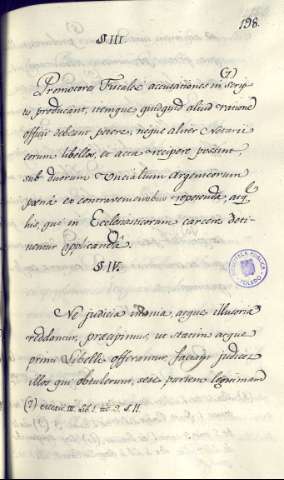 198.
§ III.
Promotores Fiscales accusationes in scrip(G)
tis producant, itemque quidquid aliud ratione
officii debeant petere, neque aliter Notarii
eorum libellos, et acta recipere possint,
sub duorum Uncialium Argenteorum
poena eo contravenientibus reponenda, atq.
his, qui in Ecclesiasticorum carcere deti-
nentur applicanda.
§ IV.
Ne judicia inania, atque illusoria
reddantur, praecipimus, ut statim atque
primi Libelli offerantur, faciant judices
illos qui obtulerunt, sese partem legitimam
BIBLIOTECA PUBLICA
TOLEDO